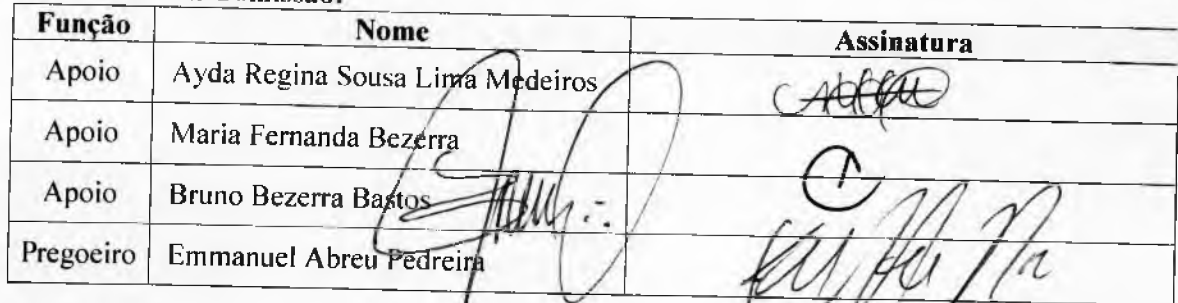 Função Nome Assinatura
Apoio Ayda Regina Sousa Lima Medeiros
Apoio Maria Fernanda Bezerra
Apoio Bruno Bezerra Bastos
Pregoeiro Emmanuel Abreu Pedreira